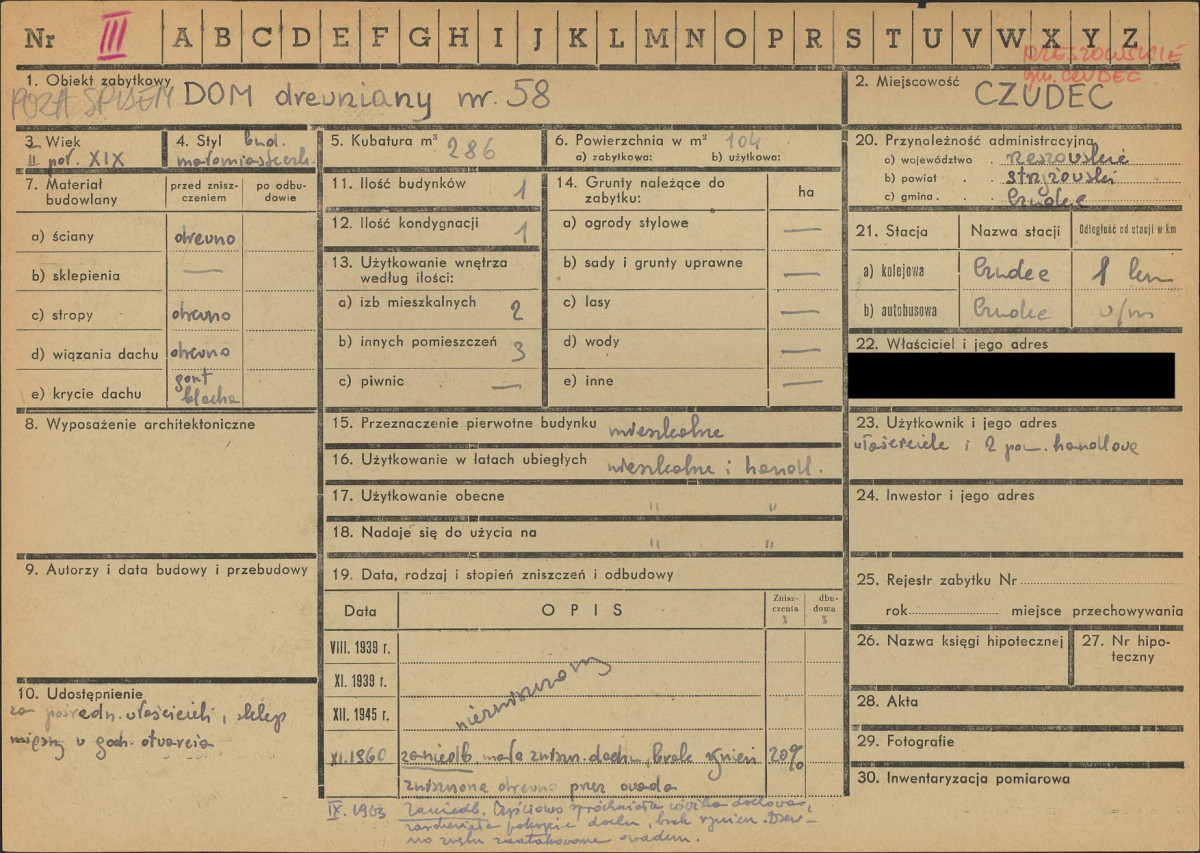 Nr III A B C D E F G H I J K L M N O P R S T U V W X Y Z
RZESZOWSKIE
gm. CZUDEC
1. Obiekt zabytkowy
POZA SPISEM DOM drewniany nr. 58
2. Miejscowość
CZUDEC
3. Wiek
II poł. XIX
4. Styl bud.
małomiasteczk.
5. Kubatura m³ 286
6. Powierzchnia w m² 104
a) zabytkowa: b) użytkowa:
7. Materiał budowlany
przed zniszczeniem
po odbudowie
a) ściany drewno
b) sklepienia —
c) stropy drewno
d) wiązania dachu drewno
e) krycie dachu gont blacha
8. Wyposażenie architektoniczne
9. Autorzy i data budowy i przebudowy
10. Udostępnienie
za pośredn. właścicieli, sklep
mięsny w godz. otwarcia
11. Ilość budynków 1
12. Ilość kondygnacji 1
13. Użytkowanie wnętrza
według ilości:
a) izb mieszkalnych 2
b) innych pomieszczeń 3
c) piwnic —
14. Grunty należące do
zabytku:
ha
a) ogrody stylowe —
b) sady i grunty uprawne —
c) lasy —
d) wody —
e) inne —
15. Przeznaczenie pierwotne budynku mieszkalne
16. Użytkowanie w latach ubiegłych mieszkalne i handl.
17. Użytkowanie obecne " "
18. Nadaje się do użycia na " "
19. Data, rodzaj i stopień zniszczeń i odbudowy
Data OPIS Zniszczenia % dbudowa %
VIII. 1939 r.
XI. 1939 r.
XII. 1945 r.
niezniszczony
XI. 1960 zaniedb. mała zniszcz. dachu, brak rynien 20%
zniszczone drewno przez owada
IX. 1963 Zaniedb. Częściowo spróchniała więźba dachowa,
pokrycie dachu, brak rynien. Drew-
no zrębu zaatakowane owadem.
20. Przynależność administracyjna
a) województwo . rzeszowskie
b) powiat . . strzyżowski
c) gmina . . . Czudec
21. Stacja Nazwa stacji Odległość od stacji w km
a) kolejowa Czudec 1 km
b) autobusowa Czudec w/m
22. Właściciel i jego adres
23. Użytkownik i jego adres
właściciele i 2 pom. handlowe
24. Inwestor i jego adres
25. Rejestr zabytku Nr
rok miejsce przechowywania
26. Nazwa księgi hipotecznej
27. Nr hipo-
teczny
28. Akta
29. Fotografie
30. Inwentaryzacja pomiarowa